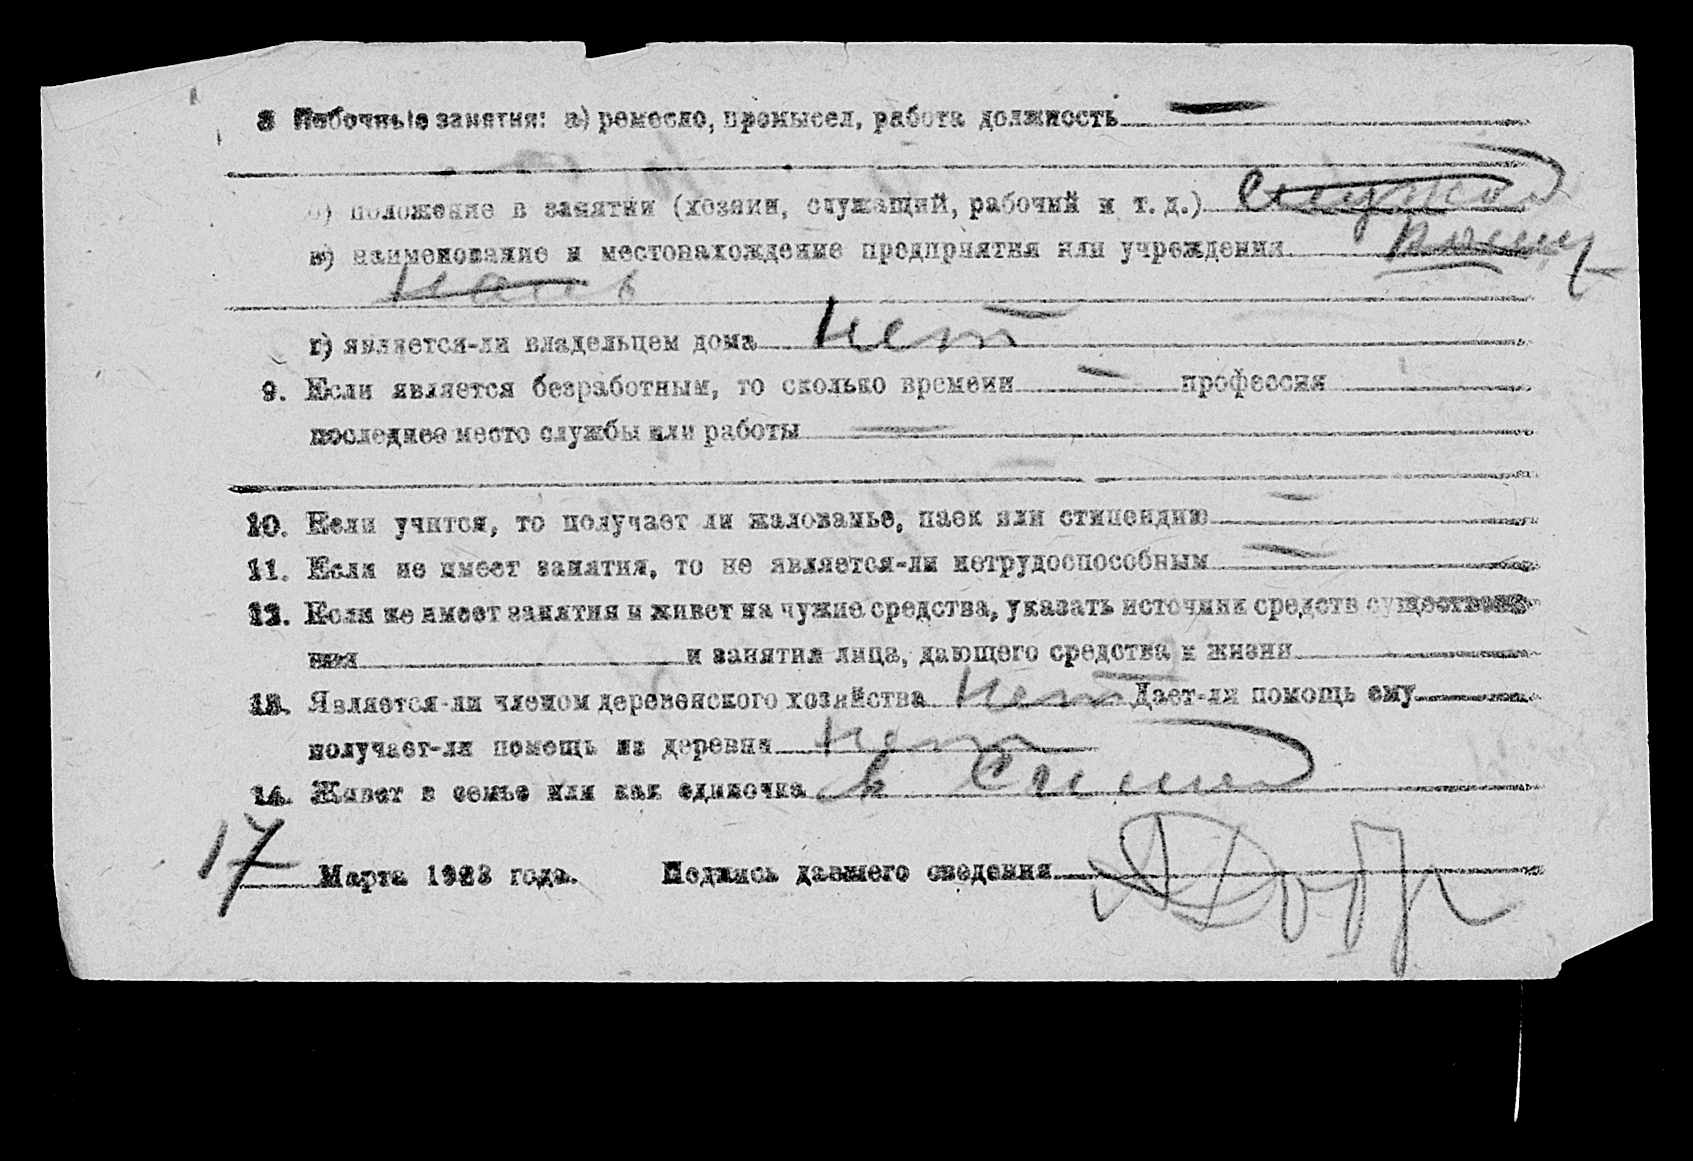 8 Побочные занятия: а) ремесло, промысел, работа должность —
б) положение в занятии (хозяин, служащий, рабочий и т. д.)
в) наименование и местонахождение предприятия или учреждения
г) является-ли владельцем дома нет
9. Если является безработным, то сколько времени — профессия
последнее место службы или работы —
10. Если учится, то получает ли жалованье, паек или стипендию —
11. Если не имеет занятия, то не является-ли нетрудоспособным —
12. Если не имеет занятия и живет на чужие средства, указать источник средств существова-
ния и занятия лица, дающего средства к жизни
13. Является-ли членом деревенского хозяйства нет Дает-ли помощь ему
получает-ли помощь из деревни нет
14. Живет в семье или как одиночка в семье
17 Марта 1923 года. Подпись давшего сведения